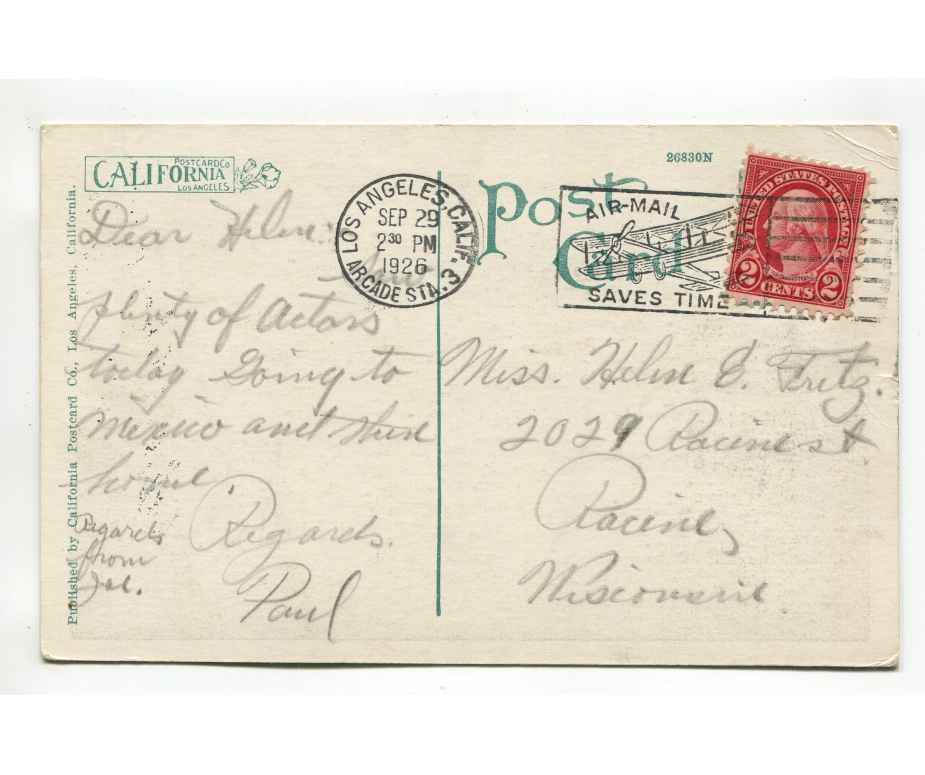 POSTCARD CO
CALIFORNIA
LOS ANGELES
Published by California Postcard Co., Los Angeles, California.
26830N
Post
Card
LOS ANGELES, CALIF.
SEP 29
2 30 PM
1926
ARCADE STA. 3
AIR-MAIL
SAVES TIME
UNITED STATES POSTAGE
2 CENTS 2
Dear Helen:
plenty of Actors
today Going to
Mexico and then
home
Regards.
Paul
Regards
from
Miss. Helen E. Fritz.
2029 Racine st
Racine,
Wisconsin.